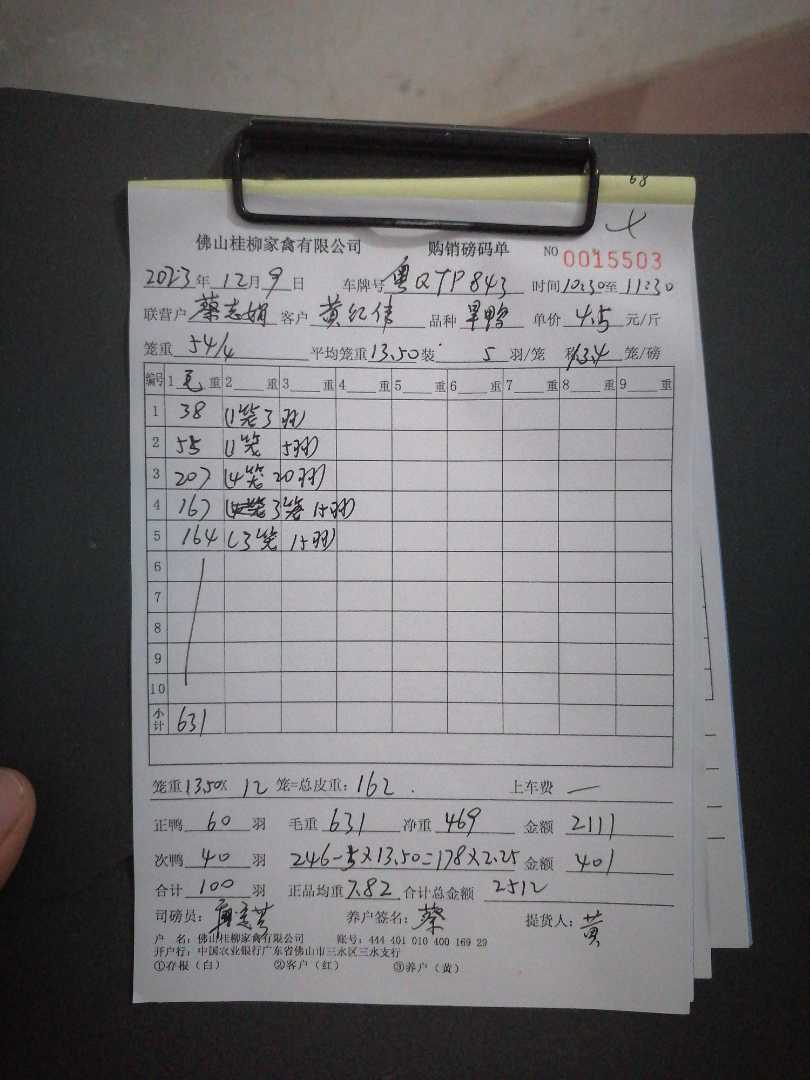 68
佛山桂柳家禽有限公司 购销磅码单 NO 0015503
2023年12月9日 车牌号 粤QTP843 时间10:30至11:30
联营户 蔡志娟 客户 黄红伟 品种 旱鸭 单价 4.5 元/斤
笼重 54/4 平均笼重13.50装 5 羽/笼 13.4 笼/磅
编号 1 毛 重 2 重 3 重 4 重 5 重 6 重 7 重 8 重 9 重
1 38 (1笼3羽)
2 55 (1笼 5羽)
3 207 (4笼 20羽)
4 167 3笼 15羽)
5 164 (3笼 15羽)
6
7
8
9
10
小计 631
笼重13.50X 12 笼=总皮重:162. 上车费 —
正鸭 60 羽 毛重 631 净重 469 金额 2111
次鸭 40 羽 246-5×13.50=178×2.25 金额 401
合计 100 羽 正品均重7.82 合计总金额 2512
司磅员: 养户签名:蔡 提货人:黄
户 名:佛山桂柳家禽有限公司 账号:444 401 010 400 169 29
开户行:中国农业银行广东省佛山市三水区三水支行
①存根(白) ②客户(红) ③养户(黄)